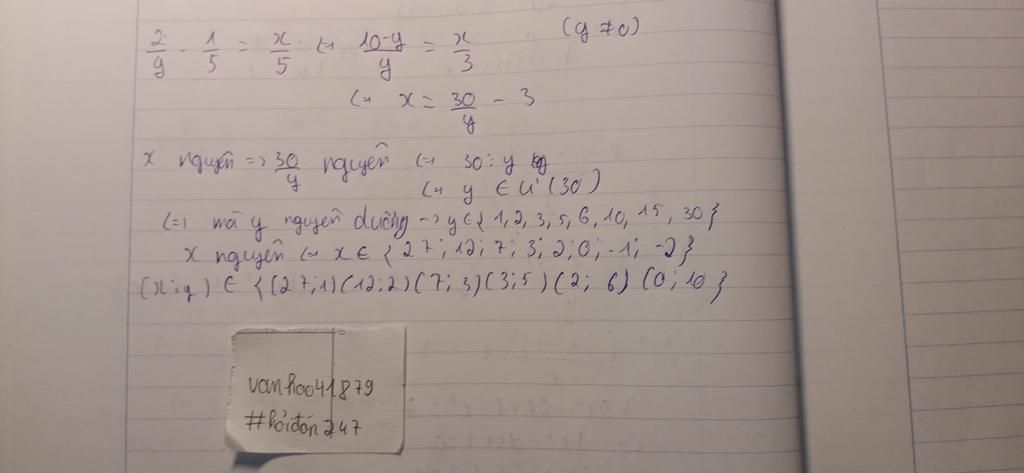 2/y - 1/5 = x/5 (-> 10-y/y = x/3 (y ≠ 0)
(-> x = 30/y - 3
x nguyên => 30/y nguyên (=> 30 : y
(-> y ∈ Ư(30)
(=) mà y nguyên dương -> y ∈ { 1, 2, 3, 5, 6, 10, 15, 30 }
x nguyên (-> x ∈ { 27 ; 12 ; 7 ; 3 ; 2 ; 0 ; -1 ; -2 }
(x ; y) ∈ { (27 ; 1) (12 ; 2) (7 ; 3) (3 ; 5) (2 ; 6) (0 ; 10 }
vanhoo41879
#hỏiđáp247